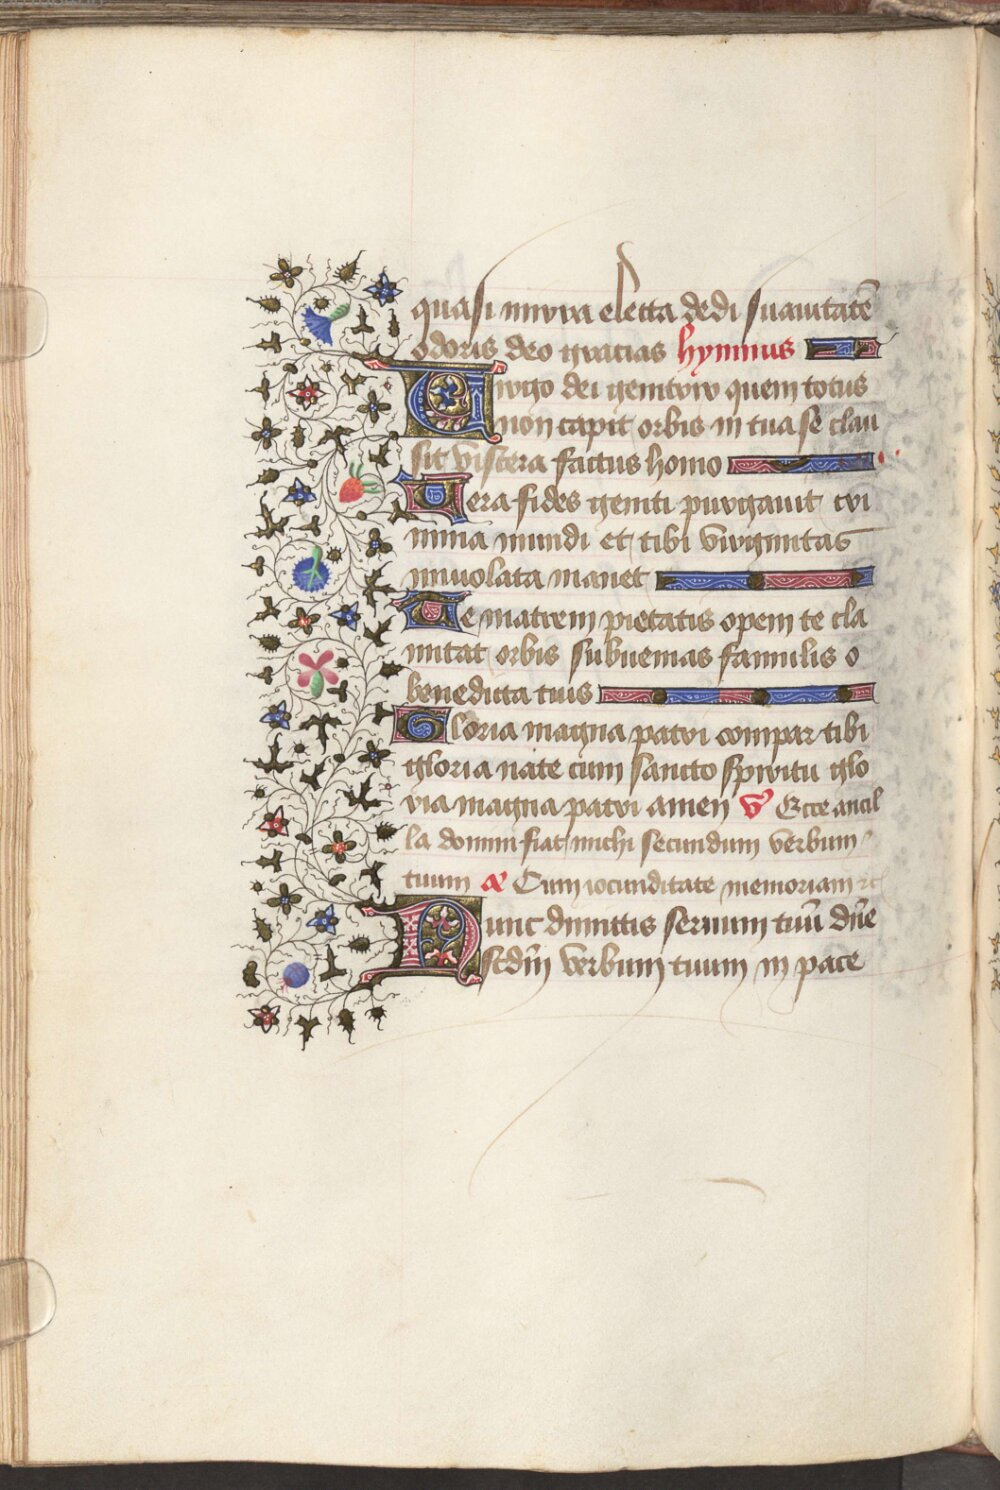 quasi mirra electa dedi suauitatē
odoris deo gracias hymnus
Virgo dei genitrix quem totus
non capit orbis in tua se clau
sit viscera factus homo
Vera fides geniti purgauit cri
mina mundi et tibi virginitas
inuiolata manet
Te matrem pietatis opem te cla
mitat orbis subuenias famulis o
benedicta tuis
Gloria magna patri compar tibi
gloria nate cum sancto spiritu glo
ria magna patri amen V Ecce ancil
la domini fiat michi secundum verbum
tuum a Cum iocunditate memoriam
Nunc dimittis seruum tuū dn̄e
scdm̄ verbum tuum in pace